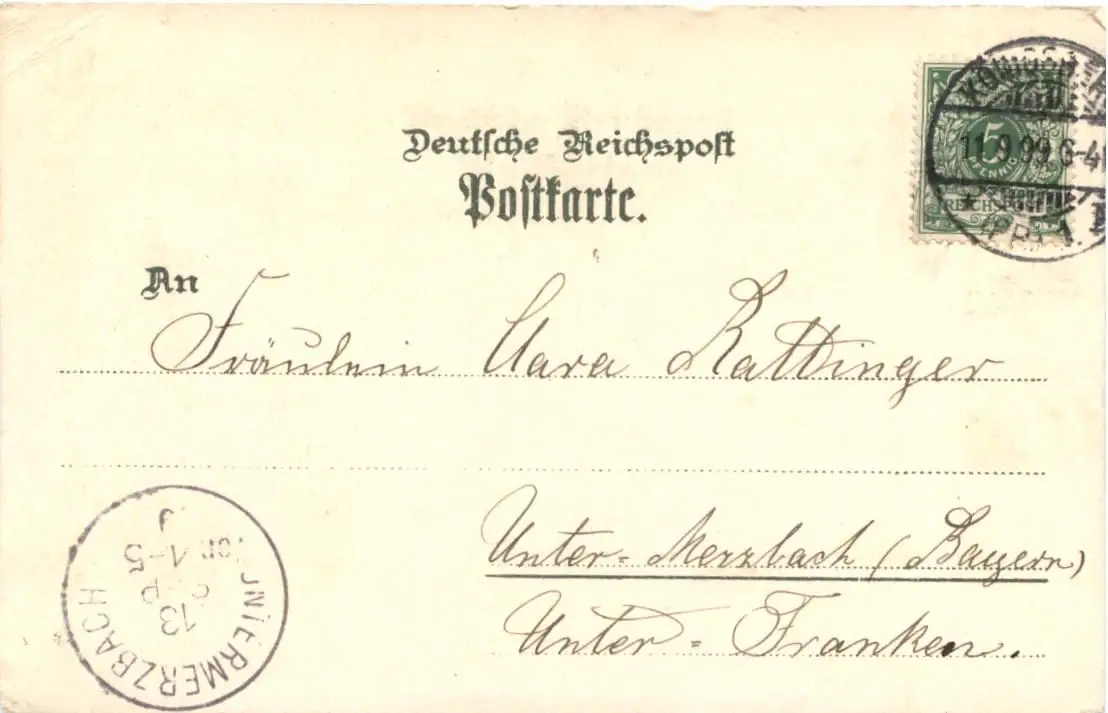 Deutsche Reichspost
Postkarte.
5
PFENNIG
REICHSPOST
11.9.99.6-
An
Fräulein Clara Rattinger
Unter-Merzbach (Bayern)
Unter-Franken.
UNTERMERZBACH
13
SEP
4-5